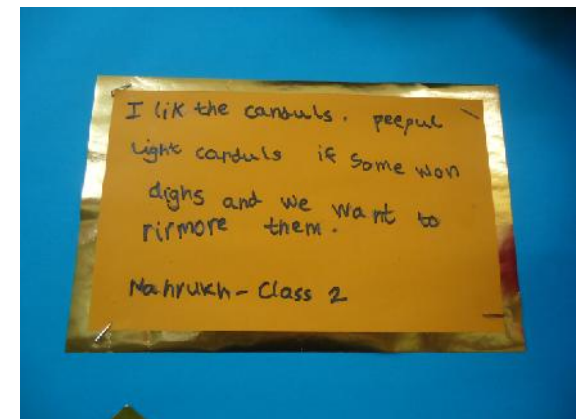 I lik the canduls. peepul
light canduls if some won
dighs and we want to
rirmore them.
Nahrukh - Class 2